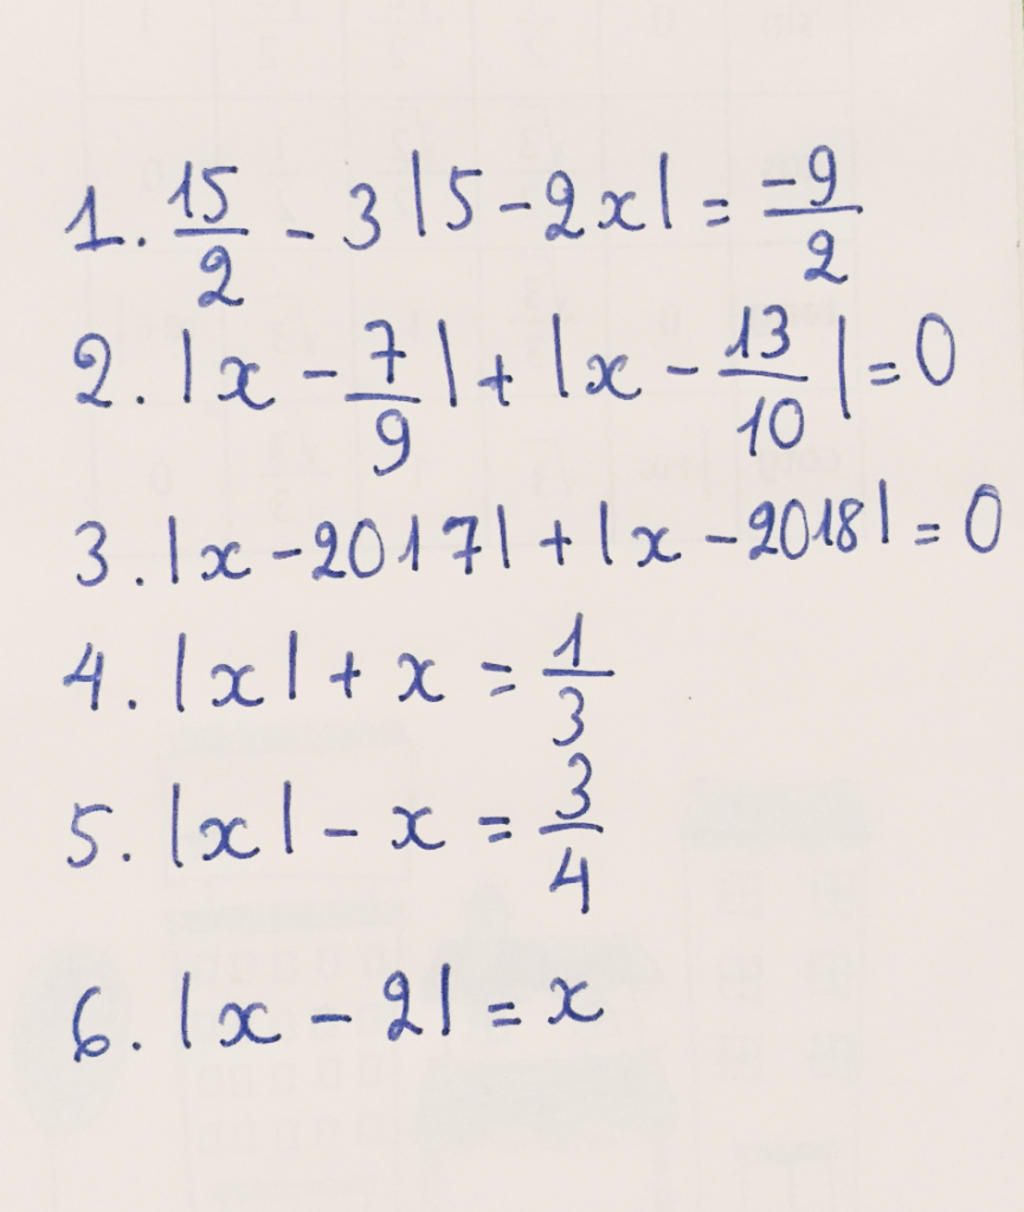 1. 15/2 - 3|5 - 2x| = -9/2
2. |x - 7/9| + |x - 13/10| = 0
3. |x - 2017| + |x - 2018| = 0
4. |x| + x = 1/3
5. |x| - x = 3/4
6. |x - 2| = x